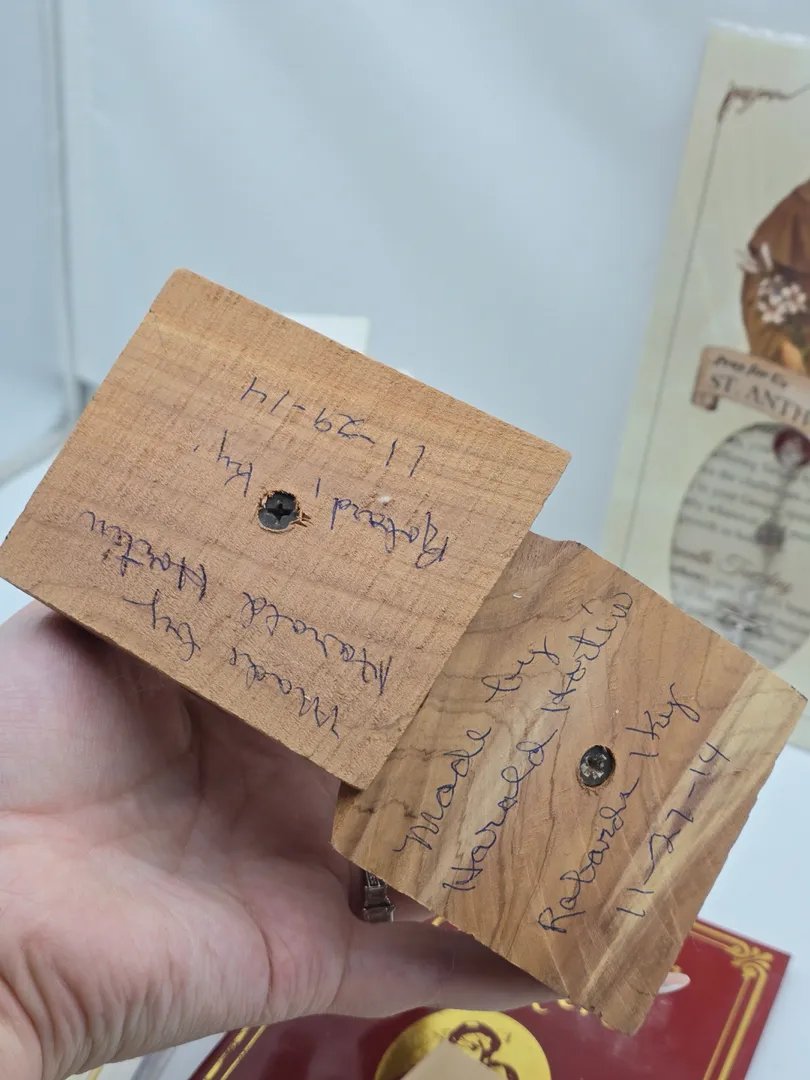 Made by
Harold Hortin
Robard, Ky.
11-29-14
Made by
Harold Hortin
Robards, Ky
11-27-14
Pray for Us
ST. ANTH